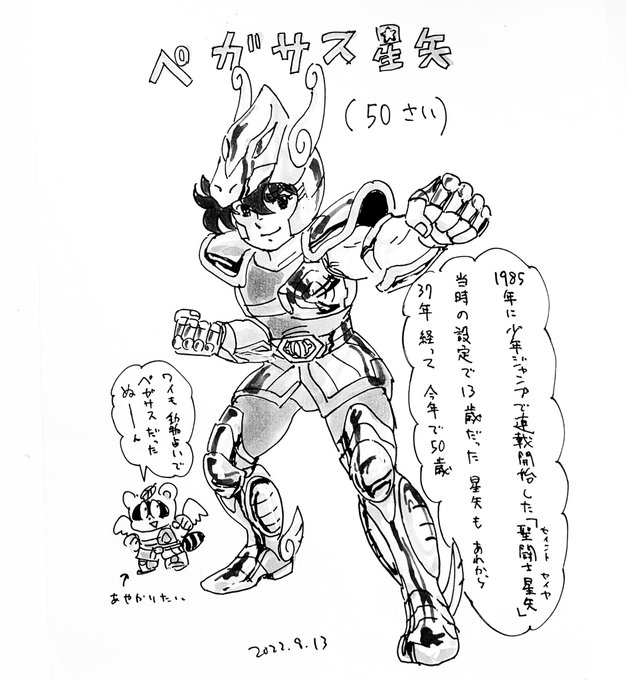 ペガサス星矢
(50さい)
1985年に少年ジャンプで連載開始した「聖闘士星矢」
セイント セイヤ
当時の設定で13歳だった 星矢も あれから
37年 経って 今年で50歳
ワイも 動物占いで
ペガサスだった
ぬーーん
あやかりたい
2022.9.13